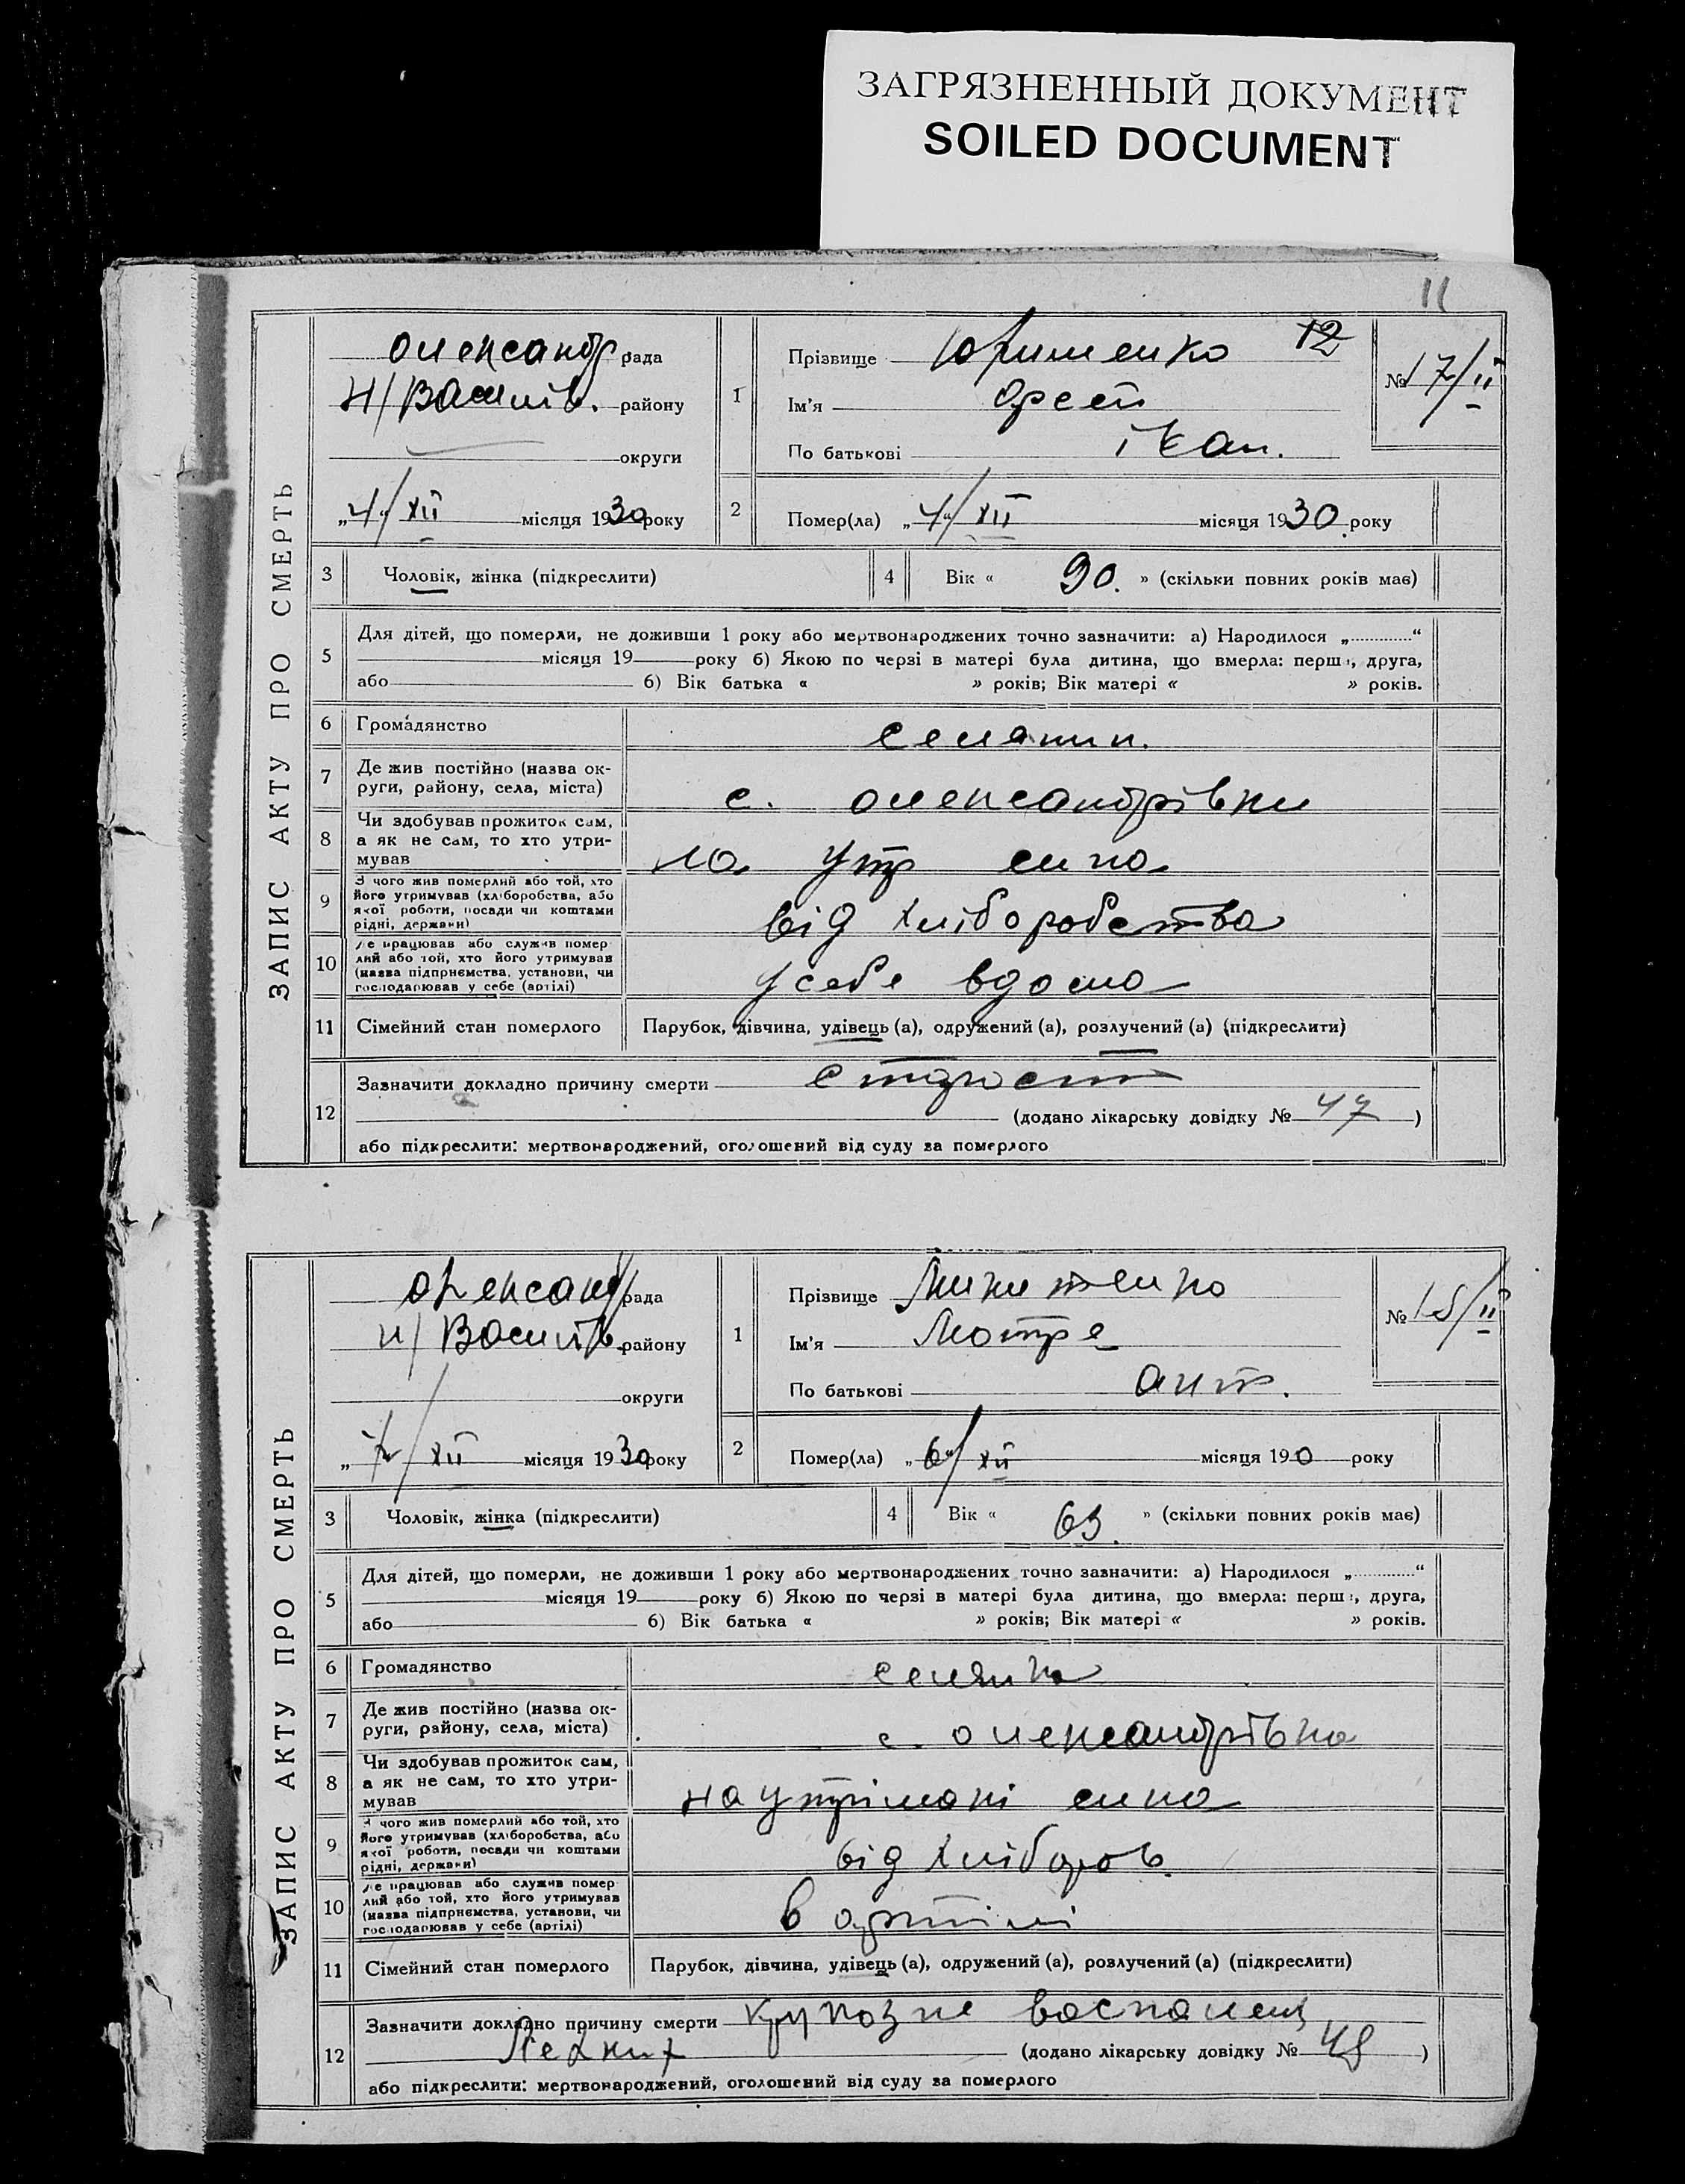 ЗАГРЯЗНЕННЫЙ ДОКУМЕНТ
SOILED DOCUMENT
11
ЗАПИС АКТУ ПРО СМЕРТЬ
Олександр рада
Н/Василів. району
округи
„4“/XII місяця 1930 року
1
Прізвище 12
Ім'я Орест
По батькові Іван.
№ 17/II
2 Помер(ла) „4“/XII місяця 1930 року
3 Чоловік, жінка (підкреслити)
4 Вік « 90. » (скільки повних років має)
5 Для дітей, що померли, не доживши 1 року або мертвонароджених точно зазначити: а) Народилося „ “
місяця 19 року б) Якою по черзі в матері була дитина, що вмерла: перша, друга,
або б) Вік батька « » років; Вік матері « » років.
6 Громадянство селянин.
7 Де жив постійно (назва ок-
руги, району, села, міста) с. Олександрівки
8 Чи здобував прожиток сам,
а як не сам, то хто утри-
мував на утр сина
9 З чого жив померлий або той, хто
його утримував (хліборобства, або
якої роботи, посади чи коштами
рідні, держави) від хліборобства
10 Де працював або служив помер
лий або той, хто його утримував
(назва підприємства, установи, чи
господарював у себе (артілі) у себе вдома
11 Сімейний стан померлого Парубок, дівчина, удівець (а), одружений (а), розлучений (а) (підкреслити)
12 Зазначити докладно причину смерти старост
(додано лікарську довідку № 47 )
або підкреслити: мертвонароджений, оголошений від суду за померлого
ЗАПИС АКТУ ПРО СМЕРТЬ
Олександ рада
Н/Василів. району
округи
„7/XII місяця 1930 року
1
Прізвище Микитенко
Ім'я Мотря
По батькові Ант.
№ 18/II
2 Помер(ла) „6“/XII місяця 190 року
3 Чоловік, жінка (підкреслити)
4 Вік « 63. » (скільки повних років має)
5 Для дітей, що померли, не доживши 1 року або мертвонароджених точно зазначити: а) Народилося „ “
місяця 19 року б) Якою по черзі в матері була дитина, що вмерла: перша, друга,
або б) Вік батька « » років; Вік матері « » років.
6 Громадянство селянка
7 Де жив постійно (назва ок-
руги, району, села, міста) с. Олександрівка
8 Чи здобував прожиток сам,
а як не сам, то хто утри-
мував на утрімані сина
9 З чого жив померлий або той, хто
його утримував (хліборобства, або
якої роботи, посади чи коштами
рідні, держави) від хлібороб.
10 Де працював або служив помер
лий або той, хто його утримував
(назва підприємства, установи, чи
господарював у себе (артілі) в артілі
11 Сімейний стан померлого Парубок, дівчина, удівець (а), одружений (а), розлучений (а) (підкреслити)
12 Зазначити докладно причину смерти крупозне воспалец
Легких (додано лікарську довідку № 48 )
або підкреслити: мертвонароджений, оголошений від суду за померлого